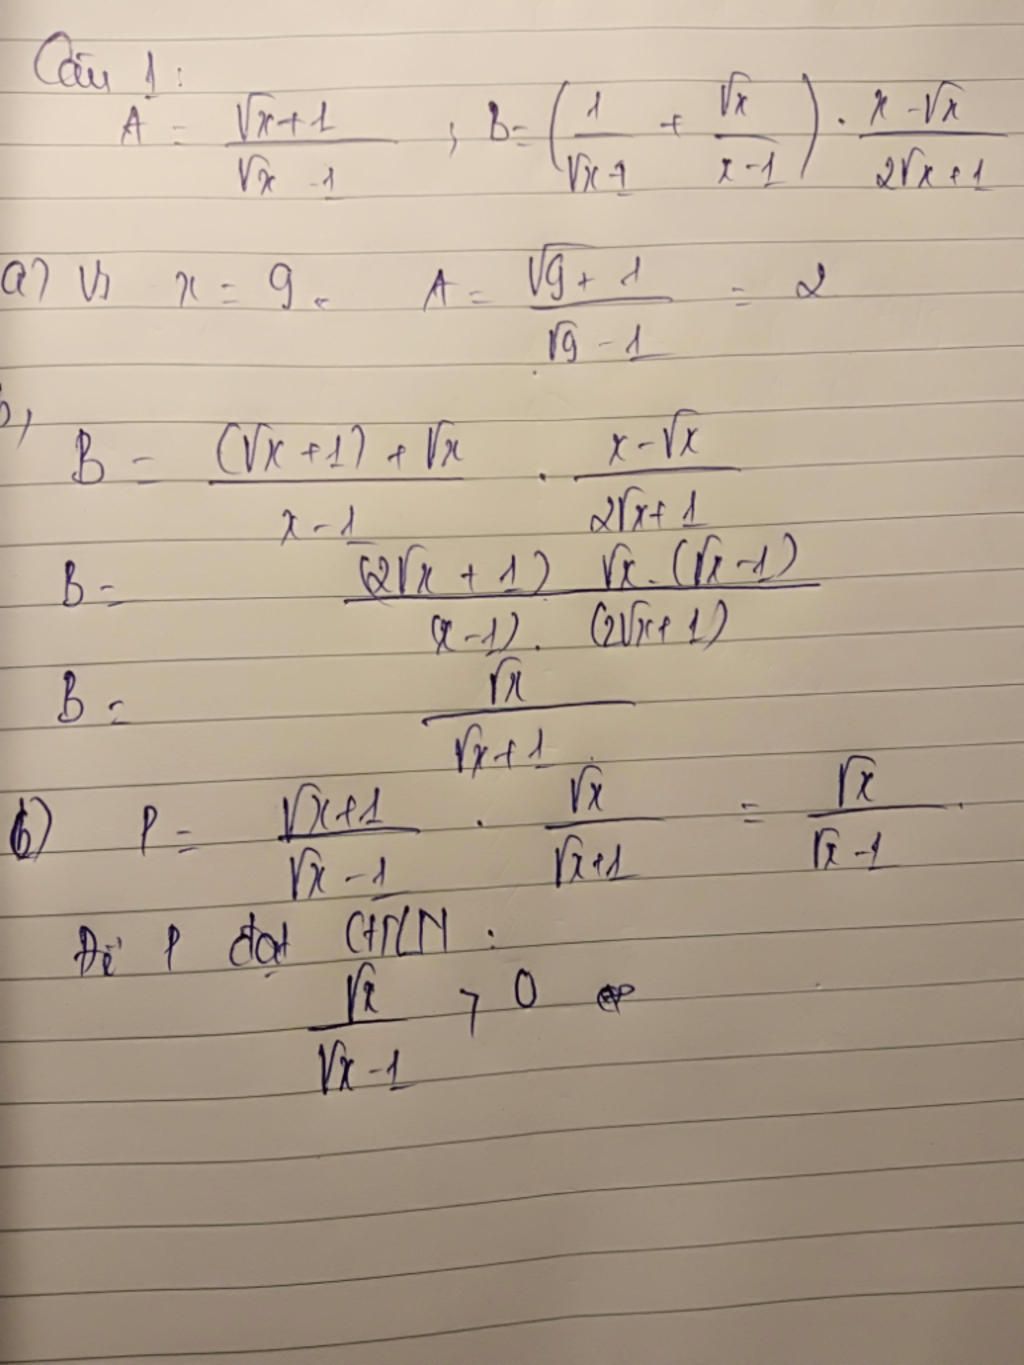 Câu 1:
A = (√x+1)/(√x -1) ; B = (1/(√x-1) + √x/(x-1)) . (x-√x)/(2√x+1)
a) Với x = 9. A = (√9+1)/(√9-1) = 2
b, B = ((√x+1)+√x)/(x-1) . (x-√x)/(2√x+1)
B = ((2√x+1) √x.(√x-1))/((x-1).(2√x+1))
B = √x/(√x+1)
b) P = (√x+1)/(√x-1) . √x/(√x+1) = √x/(√x-1).
Để P đạt GTLN:
√x/(√x-1) > 0